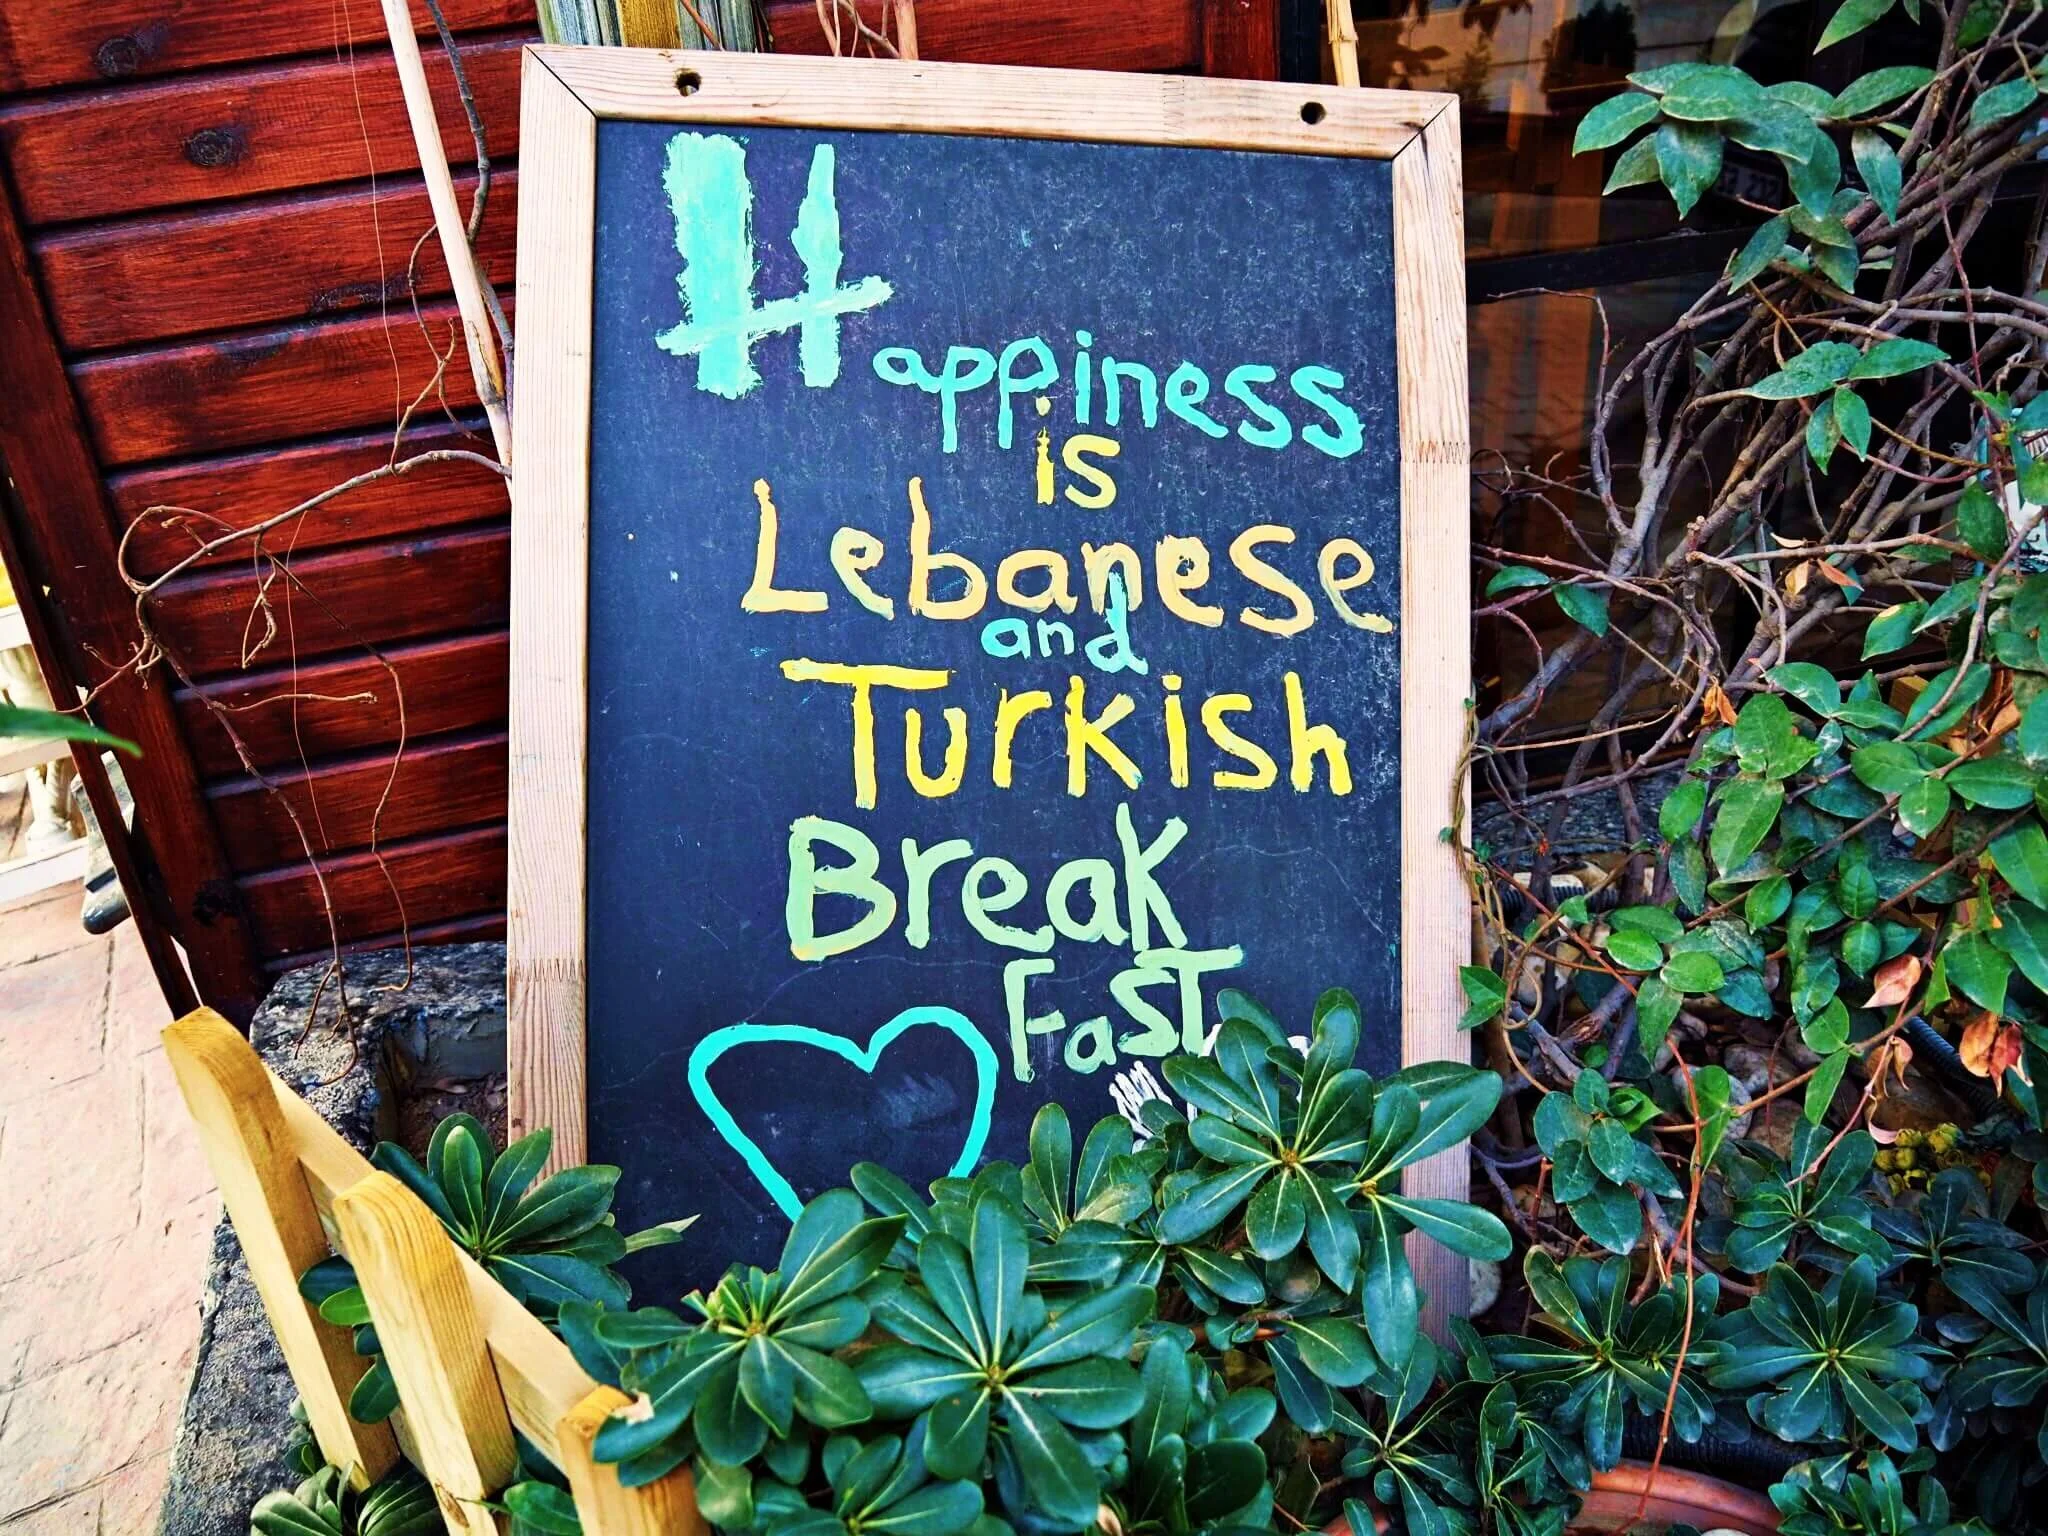 Happiness
is
Lebanese
and
Turkish
Break
Fast